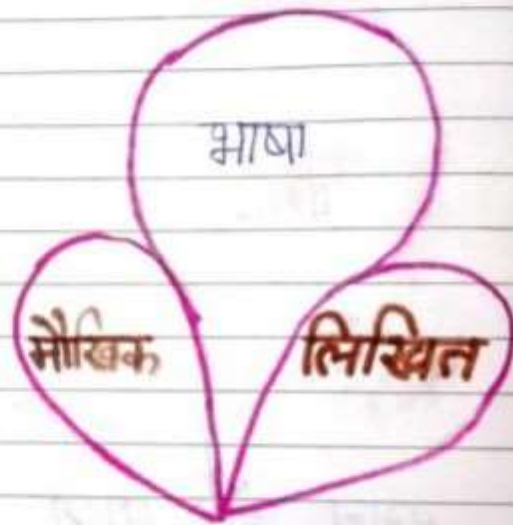 भाषा
मौखिक
लिखित